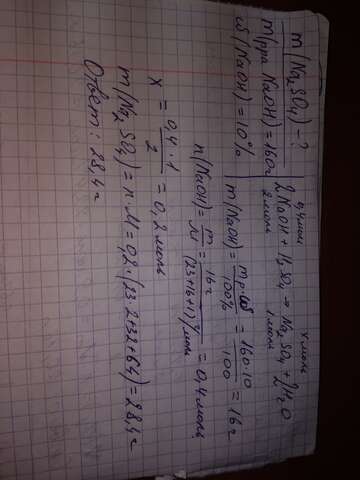 m(Na₂SO₄) - ?
m(рра NaOH) = 160г
ω(NaOH) = 10%
0,4 моль x моль
2NaOH + H₂SO₄ → Na₂SO₄ + 2H₂O
2 моль 1 моль
m(NaOH) = mр·ω/100% = 160·10/100 = 16г
n(NaOH) = m/M = 16г/(23+16+1)г/моль = 0,4 моль
x = 0,4·1/2 = 0,2 моль
m(Na₂SO₄) = n·M = 0,2·(23·2+32+64) = 28,4г
Ответ: 28,4г